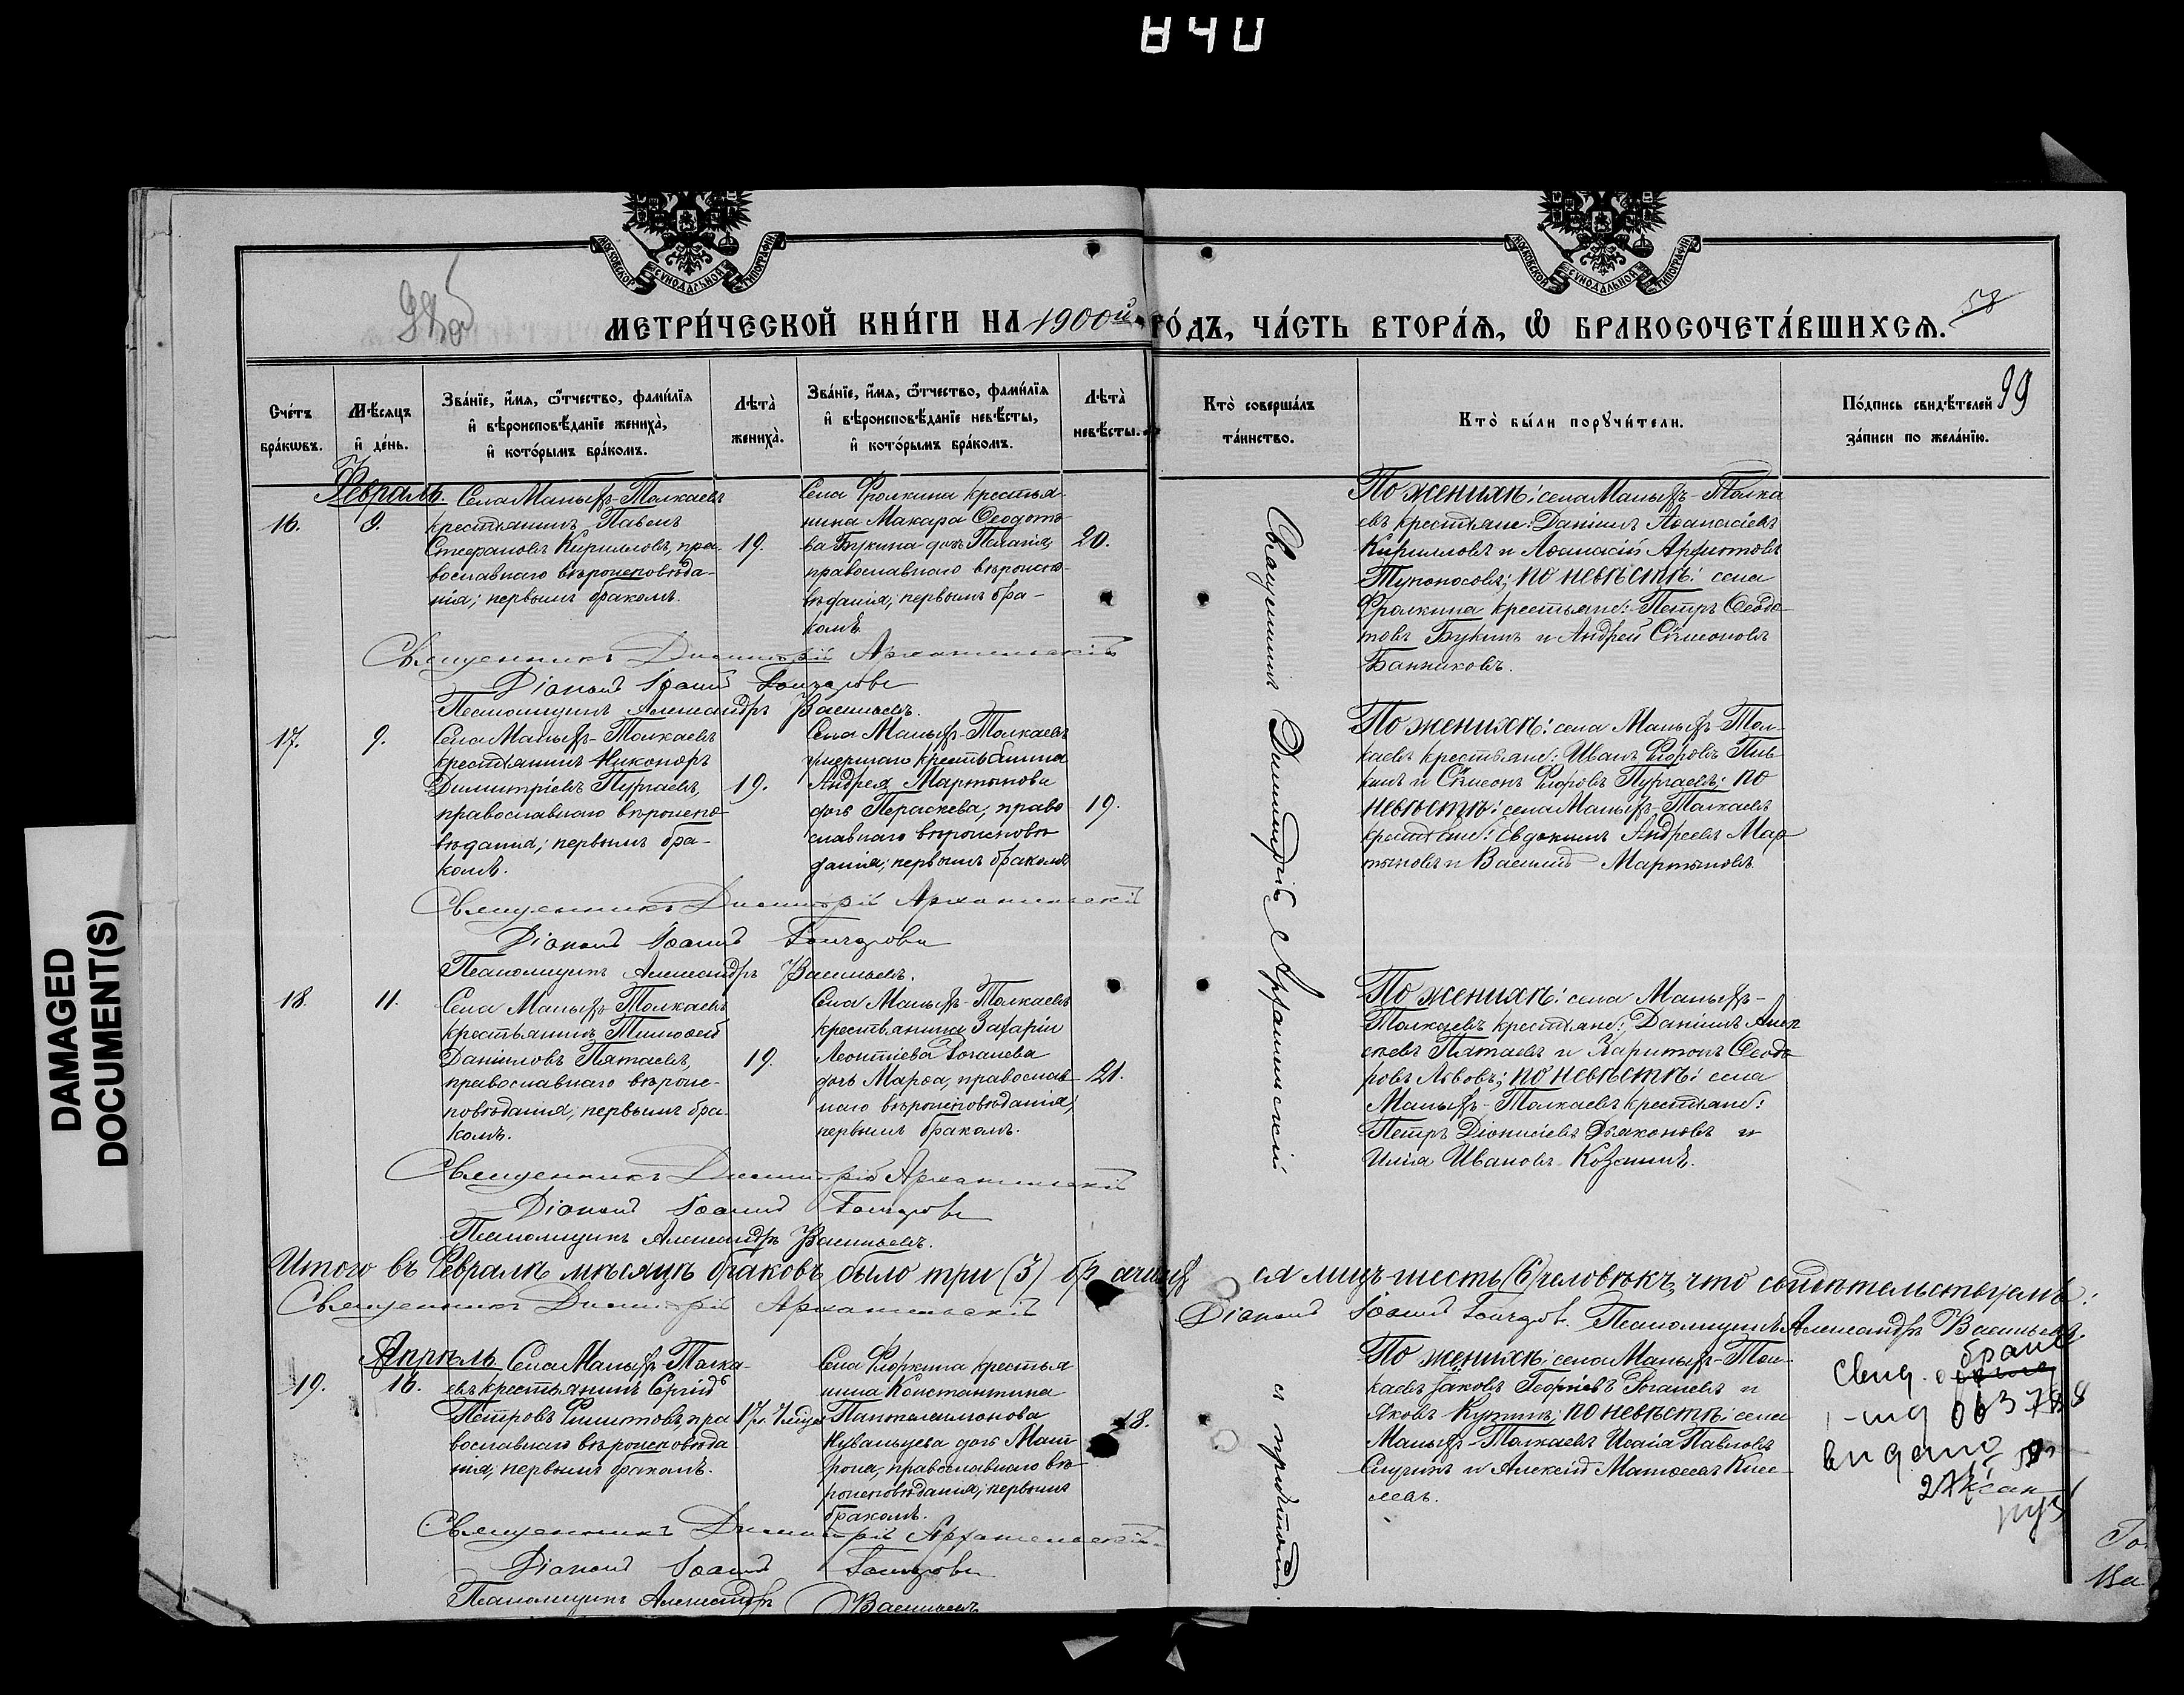 840
DAMAGED
DOCUMENT(S)
МОСКОВСКОЙ СѴНОДАЛЬНОЙ ТИПОГРАФІИ
МОСКОВСКОЙ СѴНОДАЛЬНОЙ ТИПОГРАФІИ
58
МЕТРИ́ЧЕСКОЙ КНИ́ГИ НА 1900й ГО́ДЪ, ЧА́СТЬ ВТОРА́Я, Ѡ БРАКОСОЧЕТА́ВШИХСЯ.
99
Сче́тъ
бра́кѡвъ.
Мѣ́сяцъ
и҆ де́нь.
Зва́нїе, и҆́мя, ѻ҆́тчество, фами́лїя
и҆ вѣроисповѣ́данїе жениха̀,
и҆ кото́рымъ бра́комъ.
Лѣта̀
жениха̀.
Зва́нїе, и҆́мя, ѻ҆́тчество, фами́лїя
и҆ вѣроисповѣ́данїе невѣ́сты,
и҆ кото́рымъ бра́комъ.
Лѣта̀
невѣ́сты.
Кто̀ соверша́лъ
та́инство.
Кто̀ бы́ли порꙋчи́тели.
По́дпись свидѣ́телей
за́писи по жела́нїю.
Февраль
16.
9.
Села Малыхъ-Толкаевъ
крестьянинъ Павелъ
Стефановъ Кирилловъ, пра-
вославнаго вѣроисповѣда-
нія; первымъ бракомъ.
19.
Села Фролкина крестья-
нина Макара Ѳеодото-
ва Букина дочь Пелагія,
православнаго вѣроиспо-
вѣданія; первымъ бра-
комъ.
20.
По женихѣ: села Малыхъ-Толка
евъ крестьяне: Даніилъ Аѳанасіевъ
Кирилловъ и Аѳанасій
Тупоносовъ; по невѣстѣ: села
Фролкина крестьяне: Петръ Ѳеодо-
товъ Букинъ и Андрей Сѵмеоновъ
Банниковъ.
Священникъ Димитрій Архангельскій
Діаконъ Іоаннъ Гончаровъ
Псаломщикъ Александръ Васильевъ.
17.
9.
Села Малыхъ-Толкаевъ
крестьянинъ Никоноръ
Димитріевъ Пургаевъ,
православнаго вѣроиспо
вѣданія; первымъ бра-
комъ.
19.
Села Малыхъ-Толкаевъ
умершаго крестьянина
Андрея Мартынова
дочь Параскева, право
славнаго вѣроисповѣ
данія; первымъ бракомъ
19.
По женихѣ: села Малыхъ-Тол-
каевъ крестьяне: Иванъ
и Сѵмеонъ Пургаевъ; по
невѣстѣ: села Малыхъ-Толкаевъ
крестьяне: Евдокимъ Андреевъ Мар
тыновъ и Василій Мартыновъ.
Священникъ Димитрій Архангельскій
Діаконъ Іоаннъ Гончаровъ
Псаломщикъ Александръ Васильевъ.
18.
11.
Села Малыхъ-Толкаевъ
крестьянинъ Тимоѳей
Даніиловъ Пятаевъ,
православнаго вѣроис-
повѣданія, первымъ бра-
комъ.
19.
Села Малыхъ-Толкаевъ
крестьянина Захаріи
Леонтіева Рогачева
дочь Марѳа, православ-
наго вѣроисповѣданія,
первымъ бракомъ.
21.
По женихѣ: села Малыхъ-
Толкаевъ крестьяне: Даніилъ Алек
сѣевъ Пятаевъ и Харитонъ Ѳеодо
ровъ Львовъ; по невѣстѣ: села
Малыхъ-Толкаевъ крестьяне:
Петръ Діонисіевъ Дьяконовъ и
Илія Ивановъ Козминъ.
Священникъ Димитрій Архангельскій
Діаконъ Іоаннъ Гончаровъ
Псаломщикъ Александръ Васильевъ.
Священникъ Димитрій Архангельскій съ причтомъ.
Итого въ Февралѣ мѣсяцѣ браковъ было три (3) ся лицъ шесть (6) человѣкъ, что свидѣтельствуемъ:
Священникъ Димитрій Архангельскій Діаконъ Іоаннъ Гончаровъ. Псаломщикъ Александръ Васильевъ.
Апрѣль
19.
16.
Села Малыхъ Толка-
евъ крестьянинъ Сергій
Петровъ Филатовъ, пра
вославнаго вѣроисповѣда
нія, первымъ бракомъ.
Села крестья
нина Константина
Пантелеимонова
дочь Мат-
рона, православнаго вѣ-
роисповѣданія; первымъ
бракомъ.
18.
По женихѣ: села Малыхъ-Тол-
каевъ Іаковъ Георгіевъ Рогачевъ и
Яковъ; по невѣстѣ: села
Малыхъ-Толкаевъ Исаія Павловъ
и Алексій Матѳеевъ Кисе-
левъ.
браке
свид. о
063788
видано
Священникъ Димитрій Архангельскій
Діаконъ Іоаннъ Гончаровъ
Псаломщикъ Александръ Васильевъ